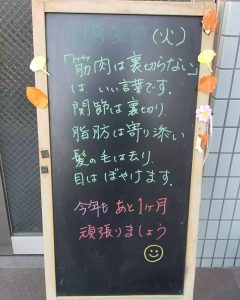 11月30日(火)
「筋肉は裏切らない」
は、いい言葉です。
関節は裏切り
脂肪は寄り添い
髪の毛は去り、
目はぼやけます。
今年も あと1ヶ月
頑張りましょう